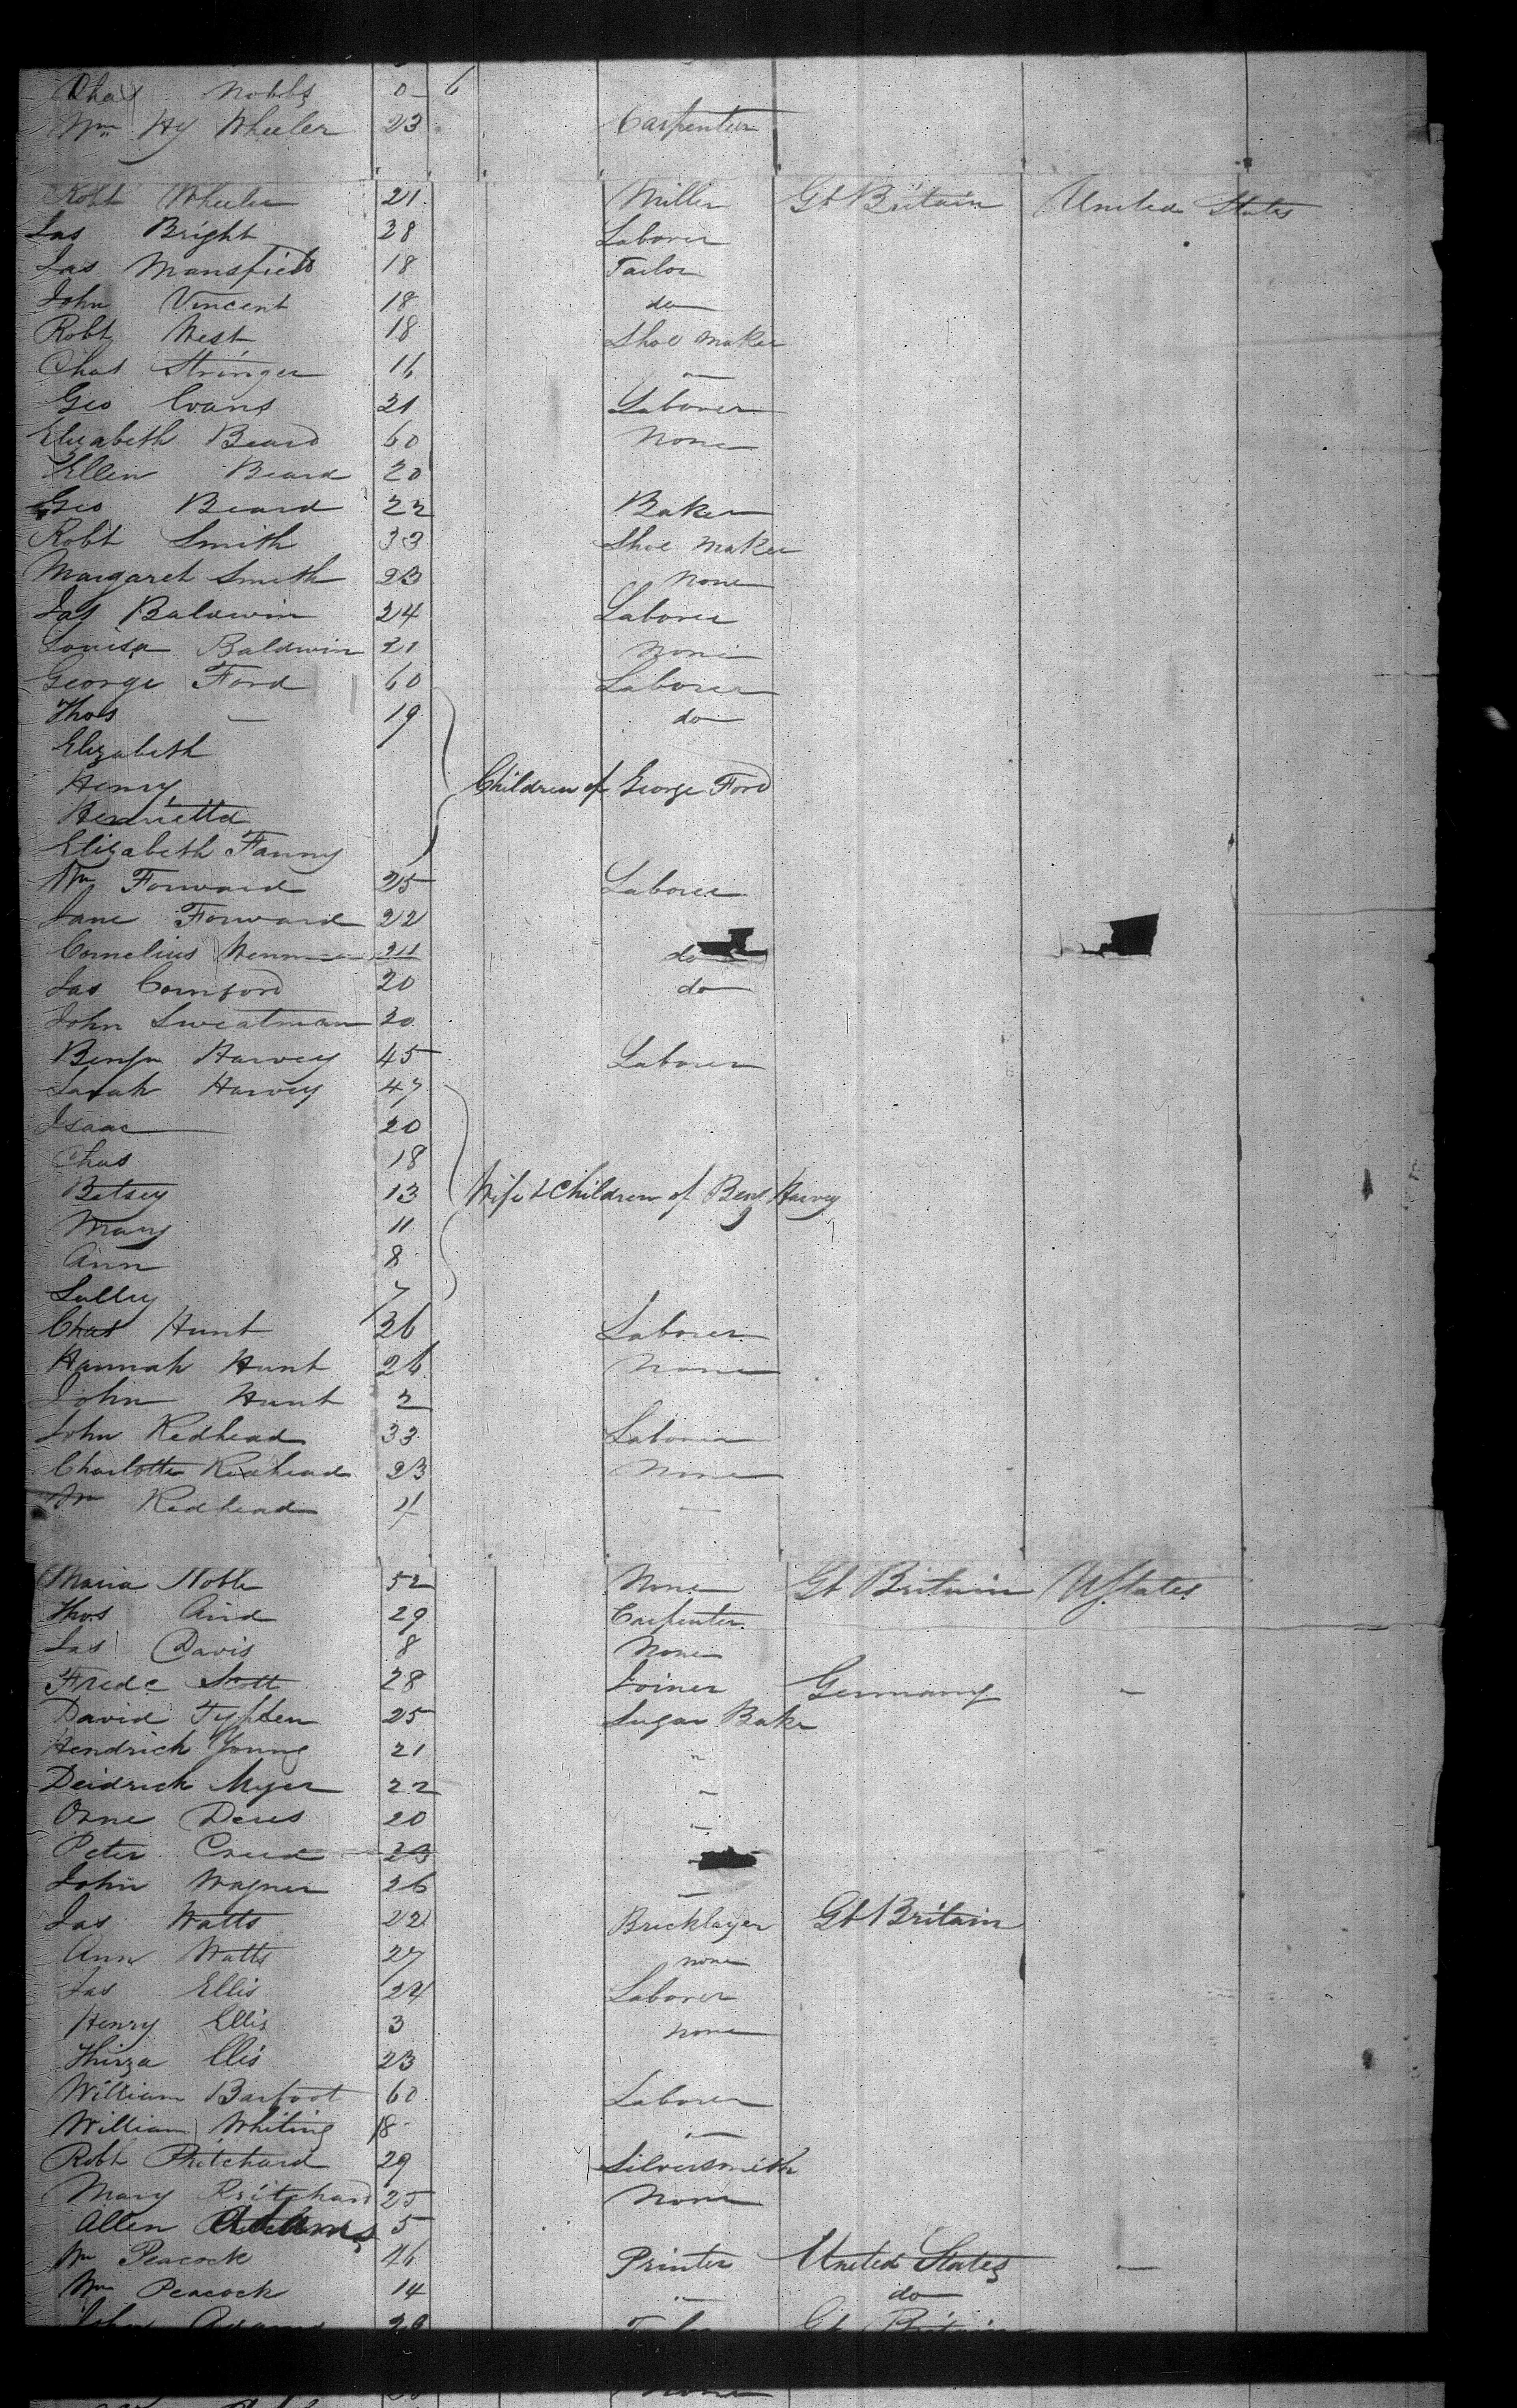 Chas Nobbs 0 6
Wm Hy Wheeler 23 Carpenter
Robt Wheeler 21 Miller Gt Britain United States
Jas Bright 38 Laborer
Jas Mansfield 18 Tailor
John Vincent 18 do
Robt West 18 Shoe Maker
Chas Stringer 16 "
Geo Evans 21 Laborer
Elizabeth Beard 60 None
Ellen Beard 20
Geo Beard 22 Baker
Robt Smith 33 Shoe Maker
Margaret Smith 23 None
Jas Baldwin 24 Laborer
Louisa Baldwin 21 None
George Ford 60 Laborer
Thos — 19 do
Elizabeth
Henry Children of George Ford
Henrietta
Elizabeth Fanny
Wm Forward 25 Laborer
Jane Forward 22
Cornelius 24 do
Jas Cornford 20 do
John Sweatman 20
Benjn Harvey 45 Laborer
Sarah Harvey 47
Isaac 20
Chas 18
Betsey 13 Wife & Children of Benj Harvey
Mary 11
Ann 8
Salley 7
Chas Hunt 36 Laborer
Hannah Hunt 26 None
John Hunt 2
John Redhead 33 Laborer
Charlotte Redhead 23 None
Wm Redhead 4 —
Maria Noble 52 None Gt Britain UStates
Thos Aird 29 Carpenter
Jas Davis 8 None
Fredc Scott 28 Joiner Germany "
David 25 Sugar Baker
Hendrich Young 21 "
Deidrich Myer 22 "
Orne 20 "
Peter 23
John Wagner 26 "
Jas Watts 22 Bricklayer Gt Britain
Ann Watts 27 none
Jas Ellis 24 Laborer
Henry Ellis 3 none
Thirza Ellis 23
William Barfoot 60 Laborer
William Whiting 18 "
Robt Pritchard 29 Silversmith
Mary Pritchard 25 None
Allen Adams 5
Wm Peacock 46 Printer United States "
Wm Peacock 14 " do
John Adams Gt Britain
None